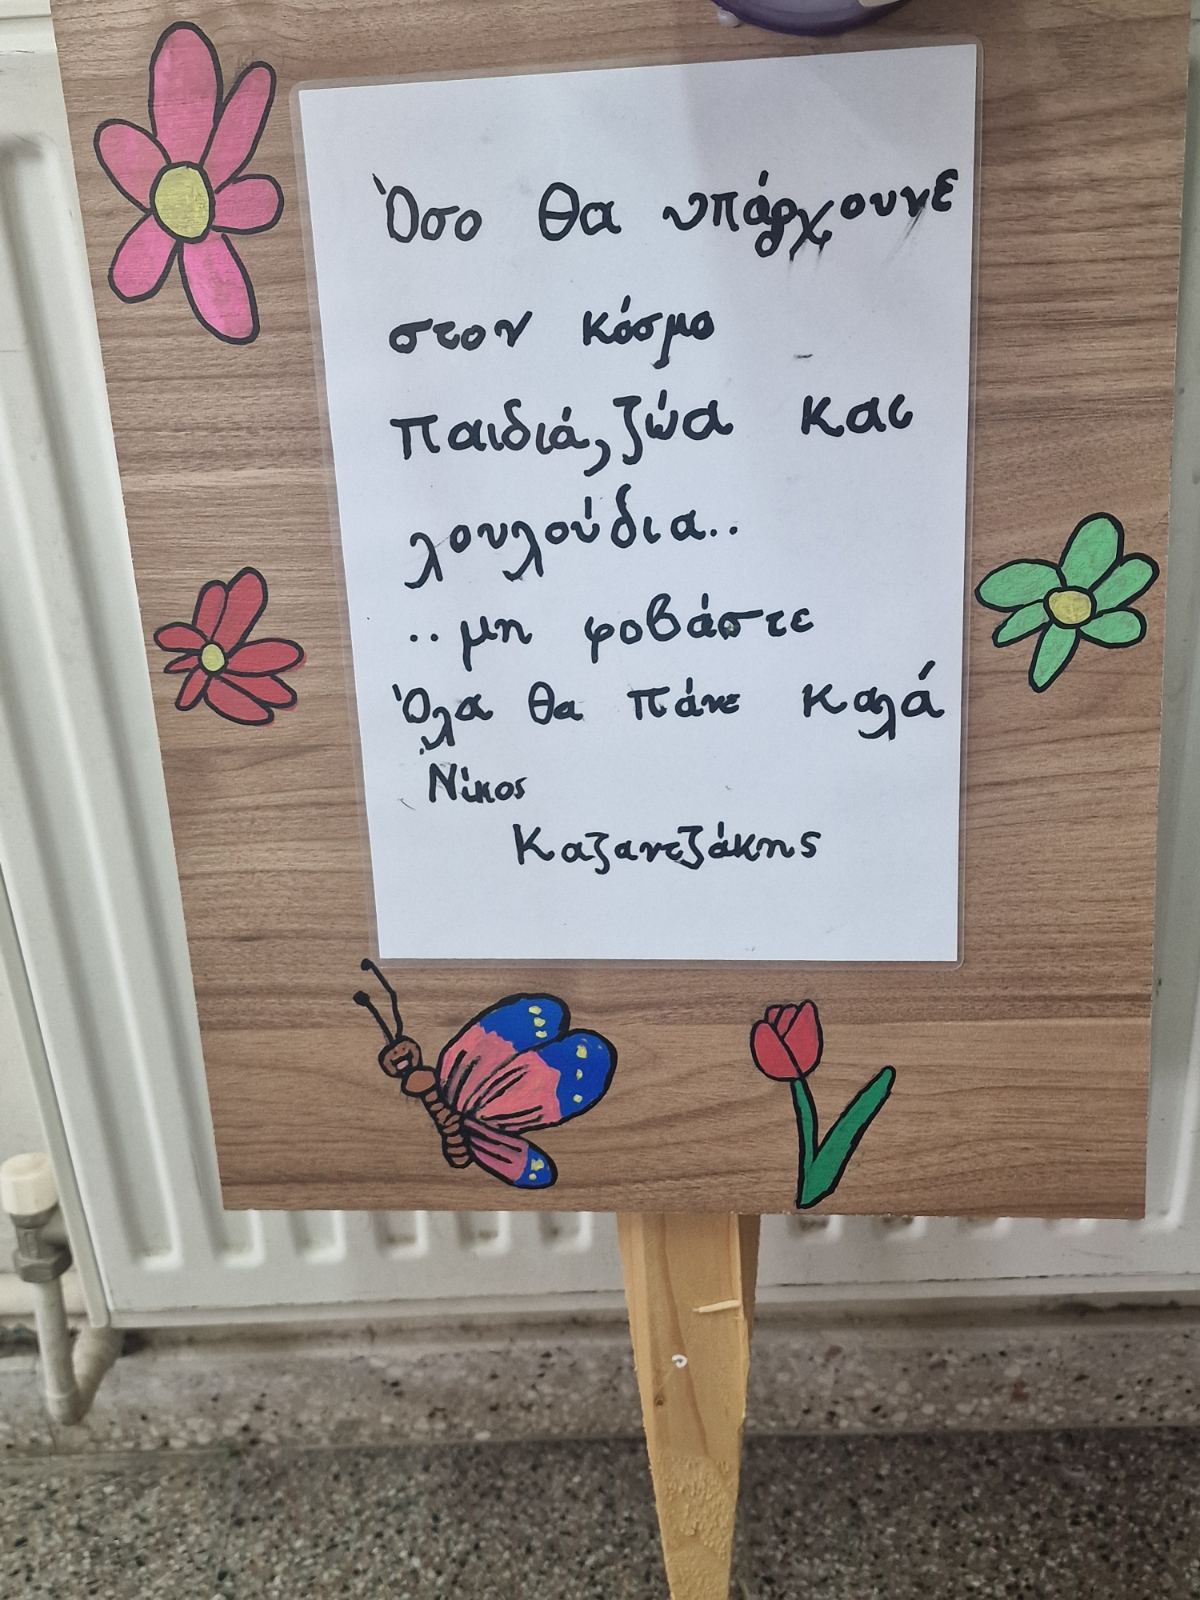 Όσο θα υπάρχουνε
στον κόσμο
παιδιά, ζώα και
λουλούδια..
..μη φοβάστε
Όλα θα πάνε καλά
Νίκος
Καζαντζάκης